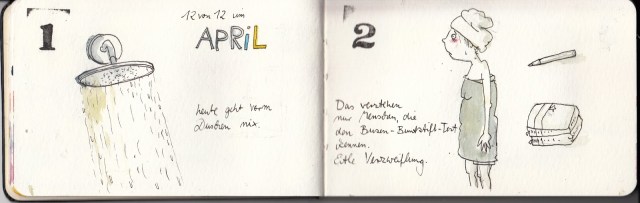 1
12 von 12 im
APRiL
heute geht vorm
Duschen nix.
2
Das verstehen
nur Menschen, die
den Busen-Buntstift-Test
kennen.
Echte Verzweiflung.